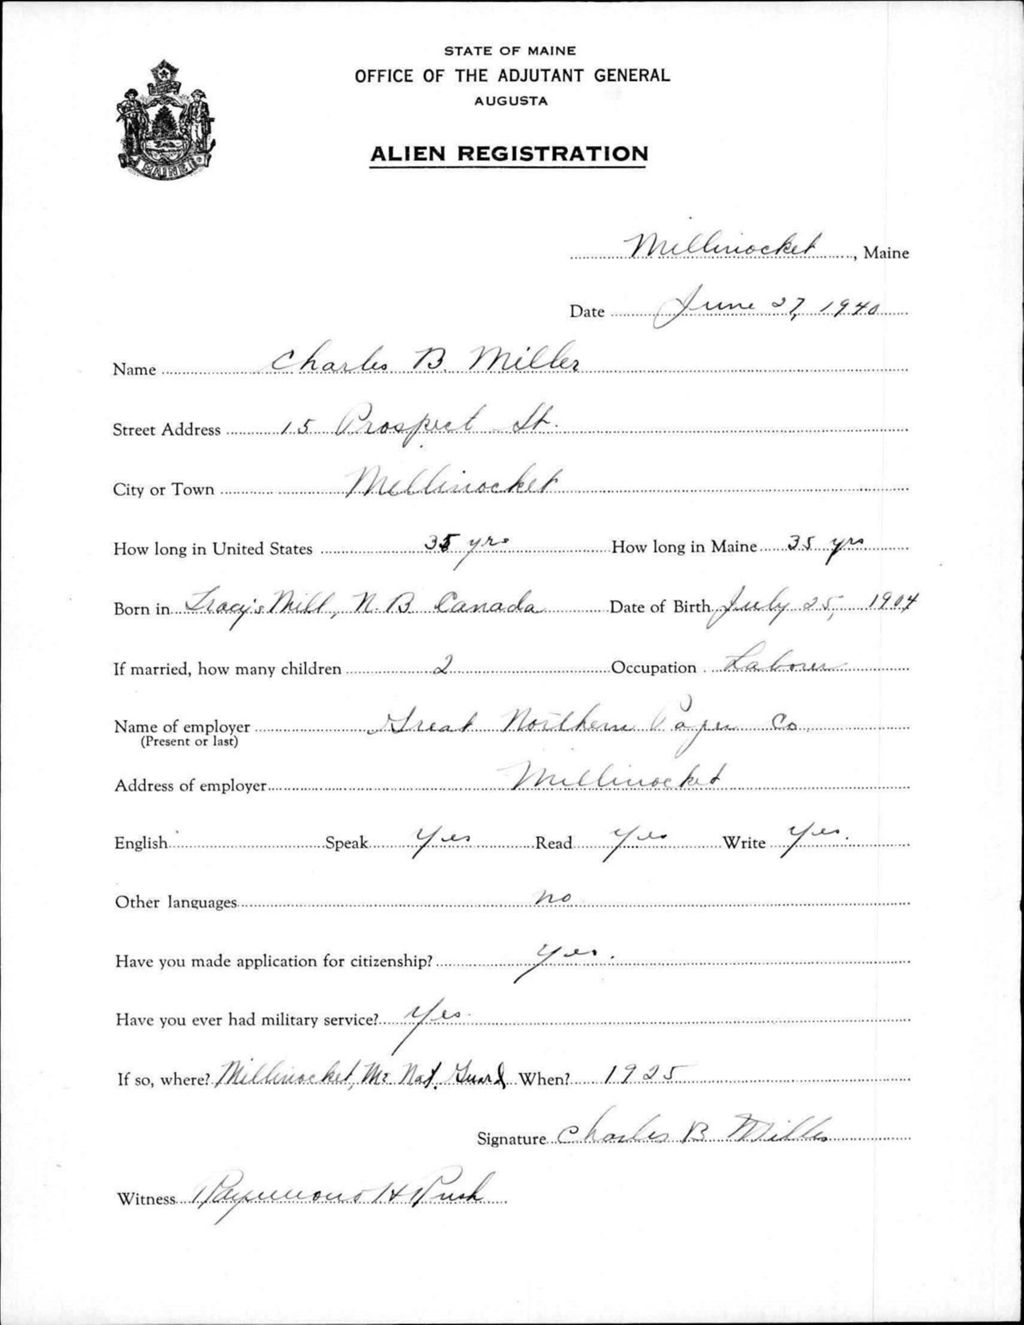 STATE OF MAINE
OFFICE OF THE ADJUTANT GENERAL
AUGUSTA
ALIEN REGISTRATION
MAINE
Millinocket, Maine
Date June 27, 1940
Name Charles B. Miller
Street Address 15 Prospect St.
City or Town Millinocket
How long in United States 35 yrs How long in Maine 35 yrs
Born in Tracy's Mill, N.B. Canada Date of Birth July 25, 1904
If married, how many children 2 Occupation Laborer
Name of employer Great Northern Paper Co.
(Present or last)
Address of employer Millinocket
English Speak Yes Read Yes Write Yes.
Other languages no
Have you made application for citizenship? Yes.
Have you ever had military service? Yes.
If so, where? Millinocket, Me Nat. Guard When? 1925
Signature Charles B Miller
Witness Raymond H Rush